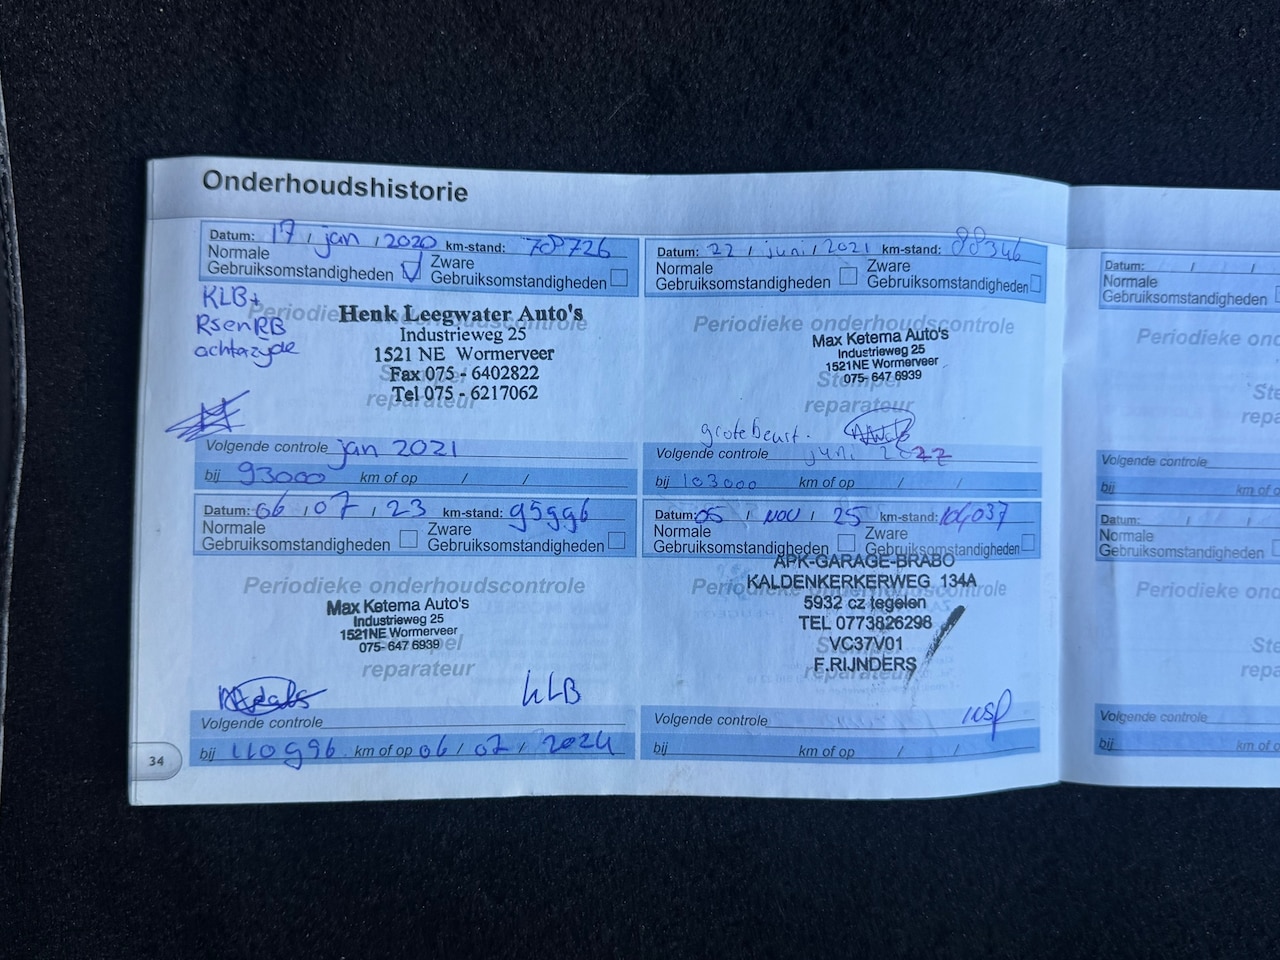 Onderhoudshistorie
Datum: 17 / jan / 2020 km-stand: 78726
Normale Gebruiksomstandigheden Zware Gebruiksomstandigheden
KLB+
RsenRB
achterzyde
Periodieke onderhoudscontrole
Henk Leegwater Auto's
Industrieweg 25
1521 NE Wormerveer
Fax 075 - 6402822
Tel 075 - 6217062
Stempel
reparateur
Volgende controle jan 2021
bij 93000 km of op / /
Datum: 22 / juni / 2021 km-stand: 88346
Normale Gebruiksomstandigheden Zware Gebruiksomstandigheden
Periodieke onderhoudscontrole
Max Ketema Auto's
Industrieweg 25
1521NE Wormerveer
075- 647 6939
Stempel
reparateur
grote beurt.
Volgende controle juni 2022
bij 103000 km of op / /
Datum: 06 / 07 / 23 km-stand: 95996
Normale Gebruiksomstandigheden Zware Gebruiksomstandigheden
Periodieke onderhoudscontrole
Max Ketema Auto's
Industrieweg 25
1521NE Wormerveer
075- 647 6939
Stempel
reparateur
KLB
Volgende controle
bij 110996 km of op 06 / 07 / 2024
Datum: 05 / NOV / 25 km-stand: 104037
Normale Gebruiksomstandigheden Zware Gebruiksomstandigheden
Periodieke onderhoudscontrole
APK-GARAGE-BRABO
KALDENKERKERWEG 134A
5932 cz tegelen
TEL 0773826298
VC37V01
F.RIJNDERS
Stempel
reparateur
insp
Volgende controle
bij km of op / /
34
Datum: / /
Normale
Gebruiksomstandigheden
Periodieke
Volgende controle
bij km of
Datum: / /
Normale
Gebruiksomstandigheden
Periodieke
Volgende controle
bij km of